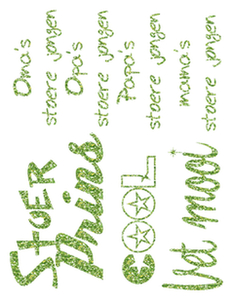 StOER
COOL
Vet mooi
Oma's
stoere jongen
Opa's
stoere jongen
Papa's
stoere jongen
mama's
stoere jongen